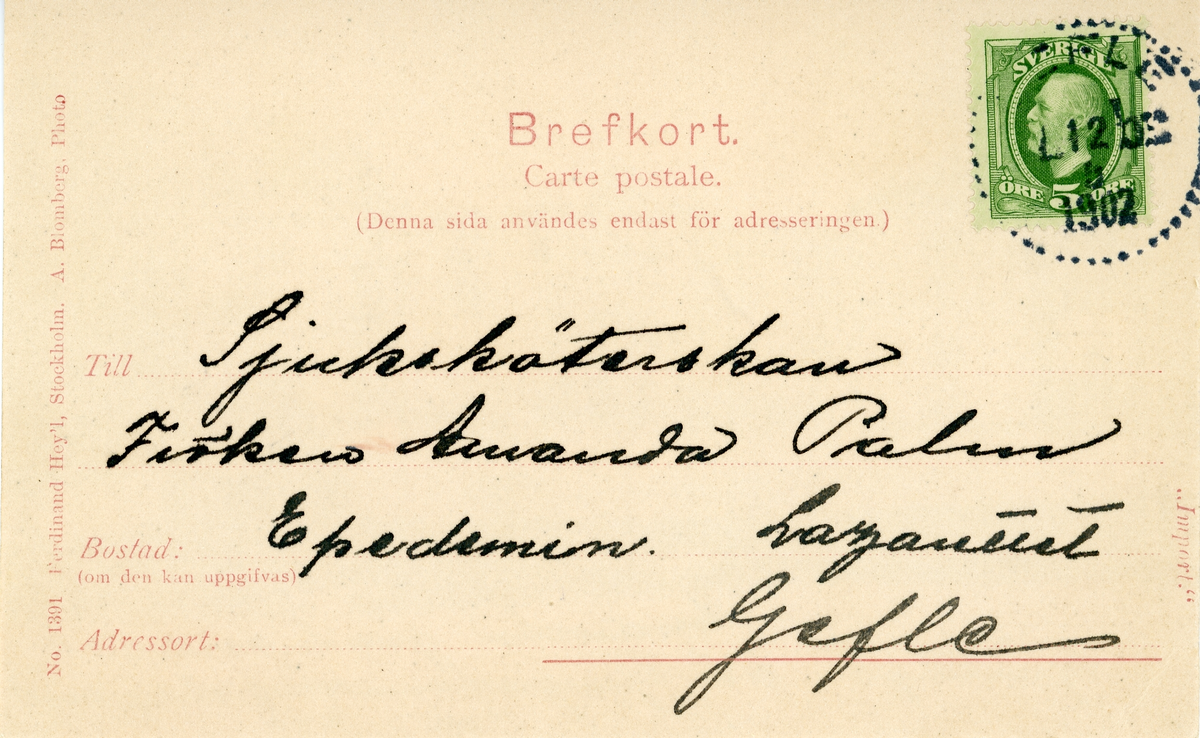 Brefkort.
Carte postale.
(Denna sida användes endast för adresseringen.)
SVERIGE
ÖRE 5 ÖRE
1902
Till Sjuksköterskan
Fröken Amanda Palm
Bostad: Epedemin. Lazarettet
(om den kan uppgifvas)
Adressort: Gefle
No. 1391 Ferdinand Hey'l, Stockholm. A. Blomberg, Photo
„Import.“